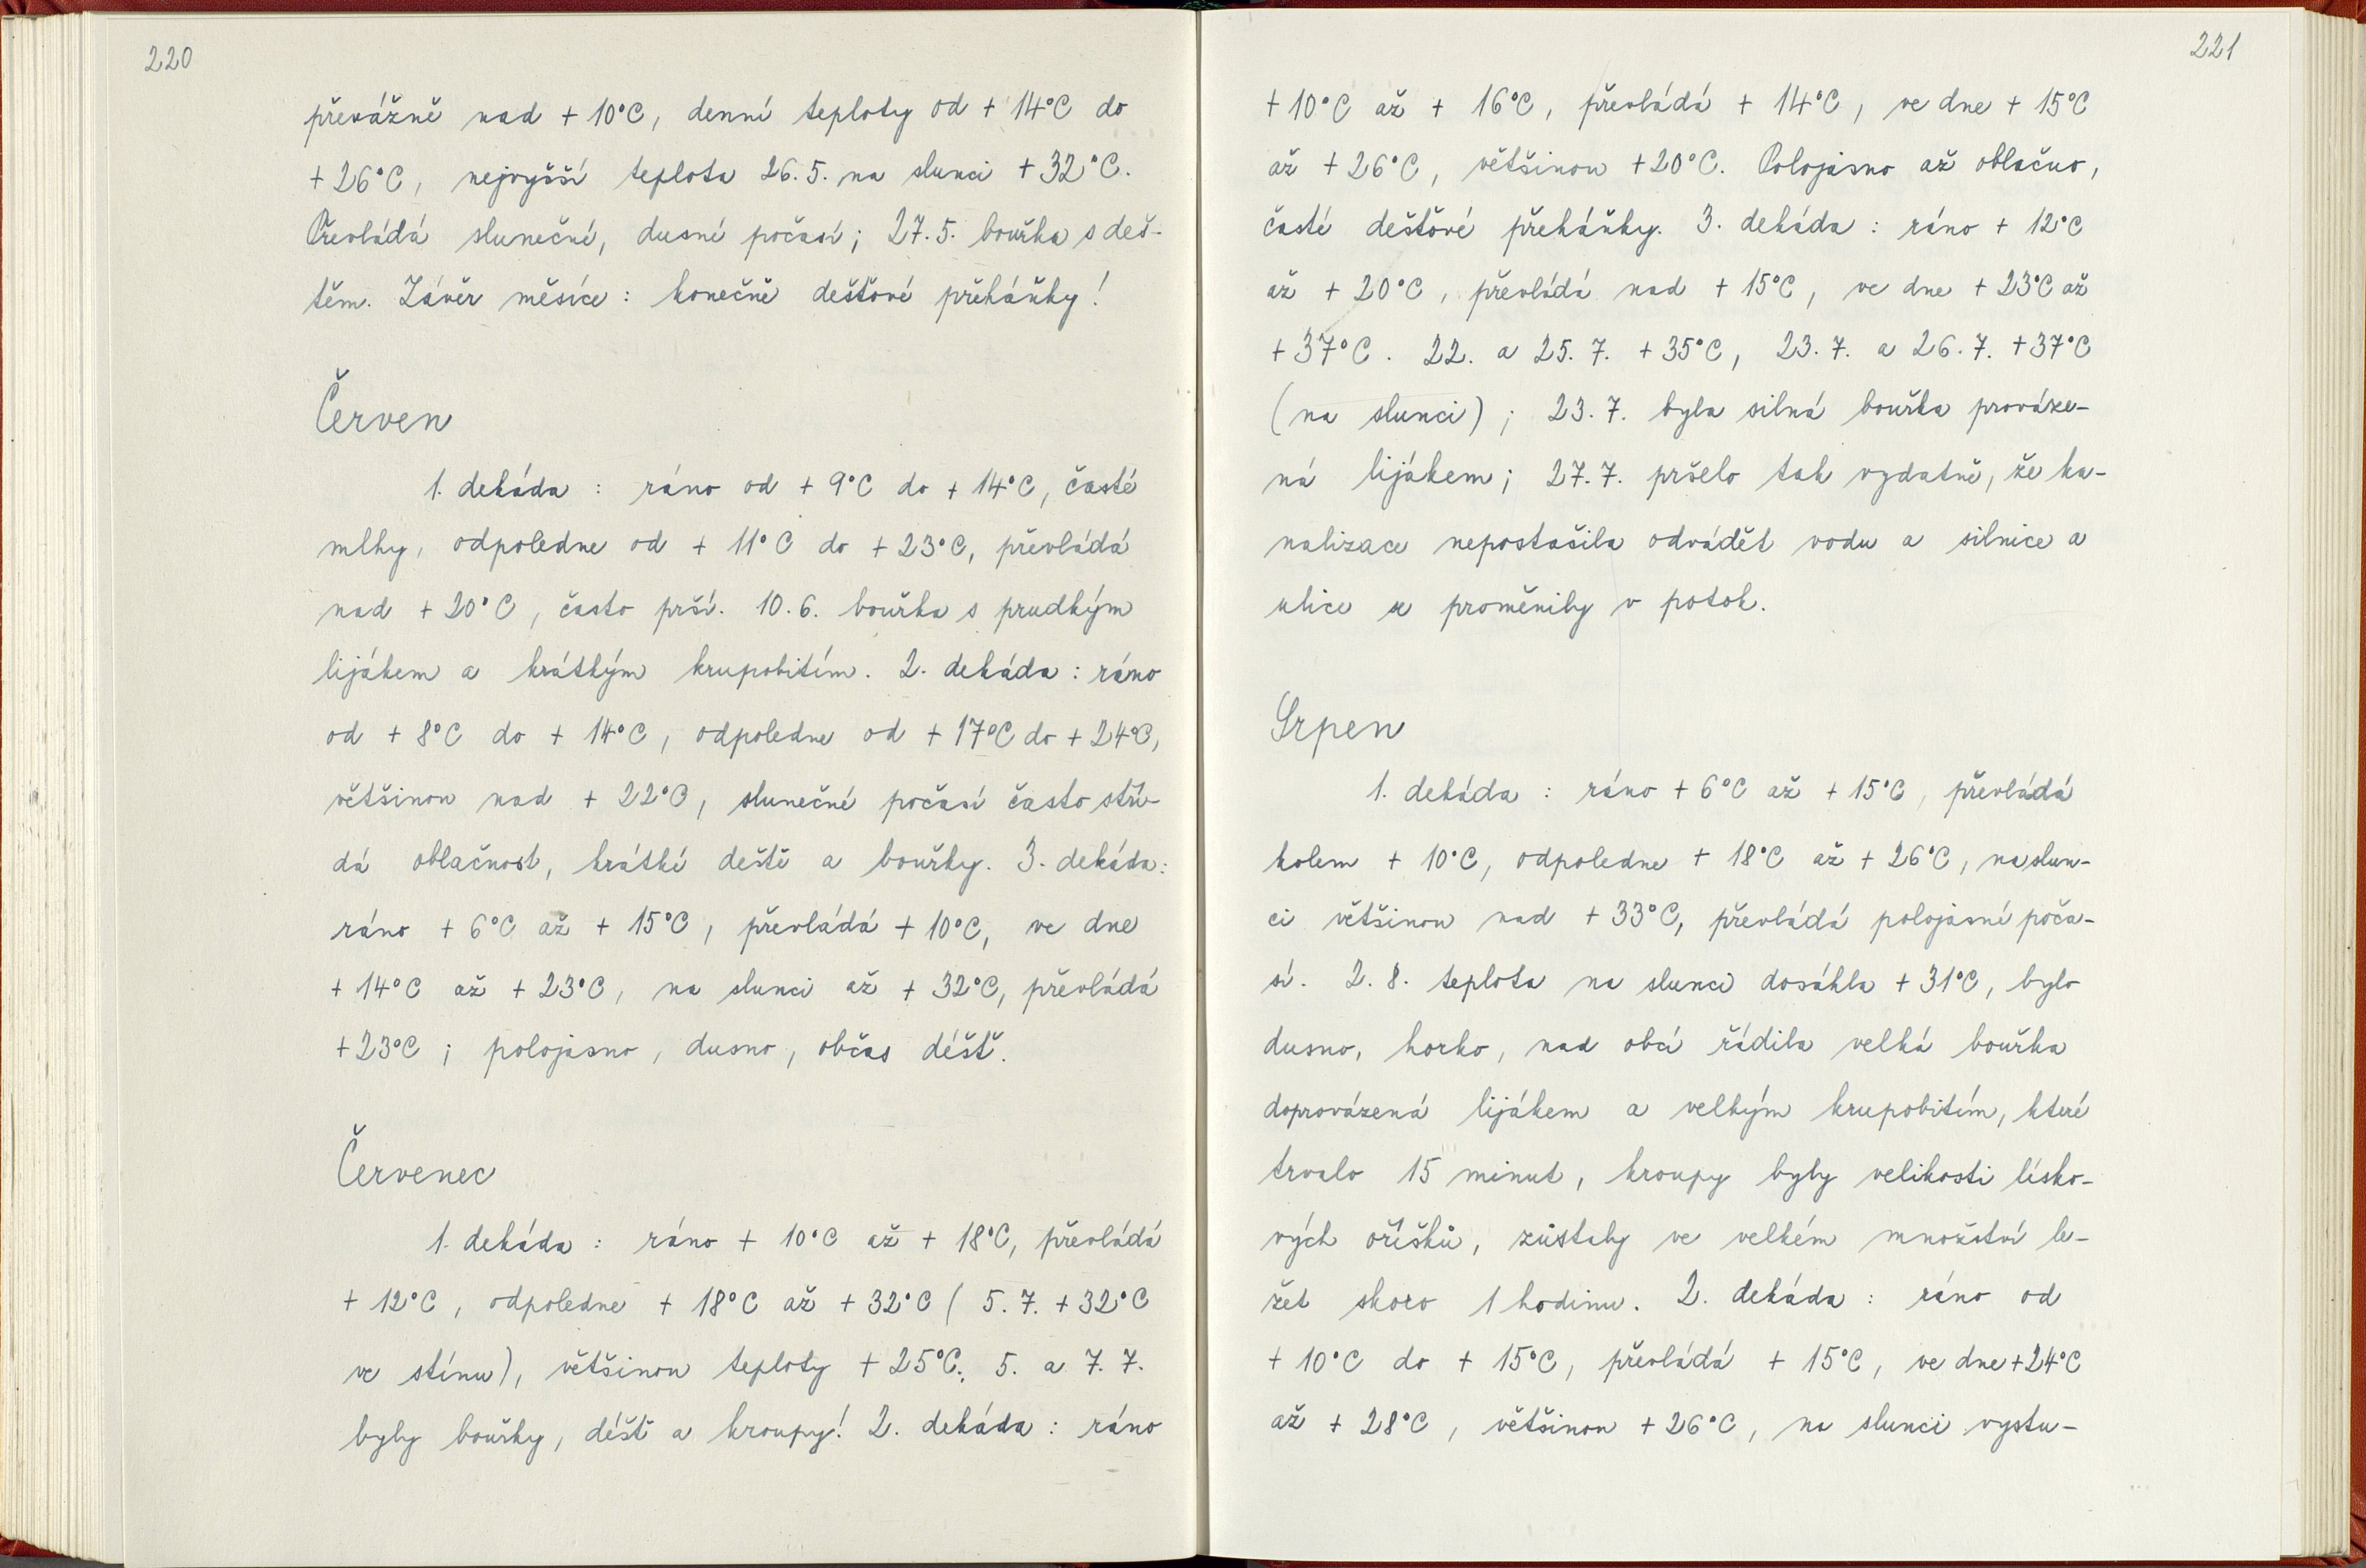 220
převážně nad + 10°C, denní teploty od + 14°C do
+ 26°C, nejvyšší teplota 26. 5. na slunci + 32°C.
Převládá slunečné, dusné počasí; 27. 5. bouřka s deš-
těm. Závěr měsíce: konečně dešťové přeháňky!
Červen
1. dekáda : ráno od + 9°C do + 14°C, časté
mlhy, odpoledne od + 11°C do + 23°C, převládá
nad + 20°C, často prší. 10. 6. bouřka s prudkým
lijákem a krátkým krupobitím. 2. dekáda : ráno
od + 8°C do + 14°C, odpoledne od + 17°C do + 24°C,
většinou nad + 22°C, slunečné počasí často stří-
dá oblačnost, krátké deště a bouřky. 3. dekáda:
ráno + 6°C až + 15°C, převládá + 10°C, ve dne
+ 14°C až + 23°C, na slunci až + 32°C, převládá
+ 23°C ; polojasno, dusno, občas déšť.
Červenec
1. dekáda : ráno + 10°C až + 18°C, převládá
+ 12°C, odpoledne + 18°C až + 32°C ( 5. 7. + 32°C
ve stínu), většinou teploty + 25°C; 5. a 7. 7.
byly bouřky, déšť a kroupy! 2. dekáda : ráno
221
+ 10°C až + 16°C, převládá + 14°C, ve dne + 15°C
až + 26°C, většinou + 20°C. Polojasno až oblačno,
časté dešťové přeháňky. 3. dekáda : ráno + 12°C
až + 20°C, převládá nad + 15°C, ve dne + 23°C až
+ 37°C. 22. a 25. 7. + 35°C, 23. 7. a 26. 7. + 37°C
(na slunci) ; 23. 7. byla silná bouřka prováze-
ná lijákem; 27. 7. pršelo tak vydatně, že ka-
nalizace nepostačila odvádět vodu a silnice a
ulice se proměnily v potok.
Srpen
1. dekáda : ráno + 6°C až + 15°C, převládá
kolem + 10°C, odpoledne + 18°C až + 26°C, na slun-
ci většinou nad + 33°C, převládá polojasné poča-
sí. 2. 8. teplota na slunci dosáhla + 31°C, bylo
dusno, horko, nad obcí řádila velká bouřka
doprovázená lijákem a velkým krupobitím, které
trvalo 15 minut, kroupy byly velikosti lísko-
vých oříšků, zůstaly ve velkém množství le-
žet skoro 1 hodinu. 2. dekáda : ráno od
+ 10°C do + 15°C, převládá + 15°C, ve dne + 24°C
až + 28°C, většinou + 26°C, na slunci vystu-